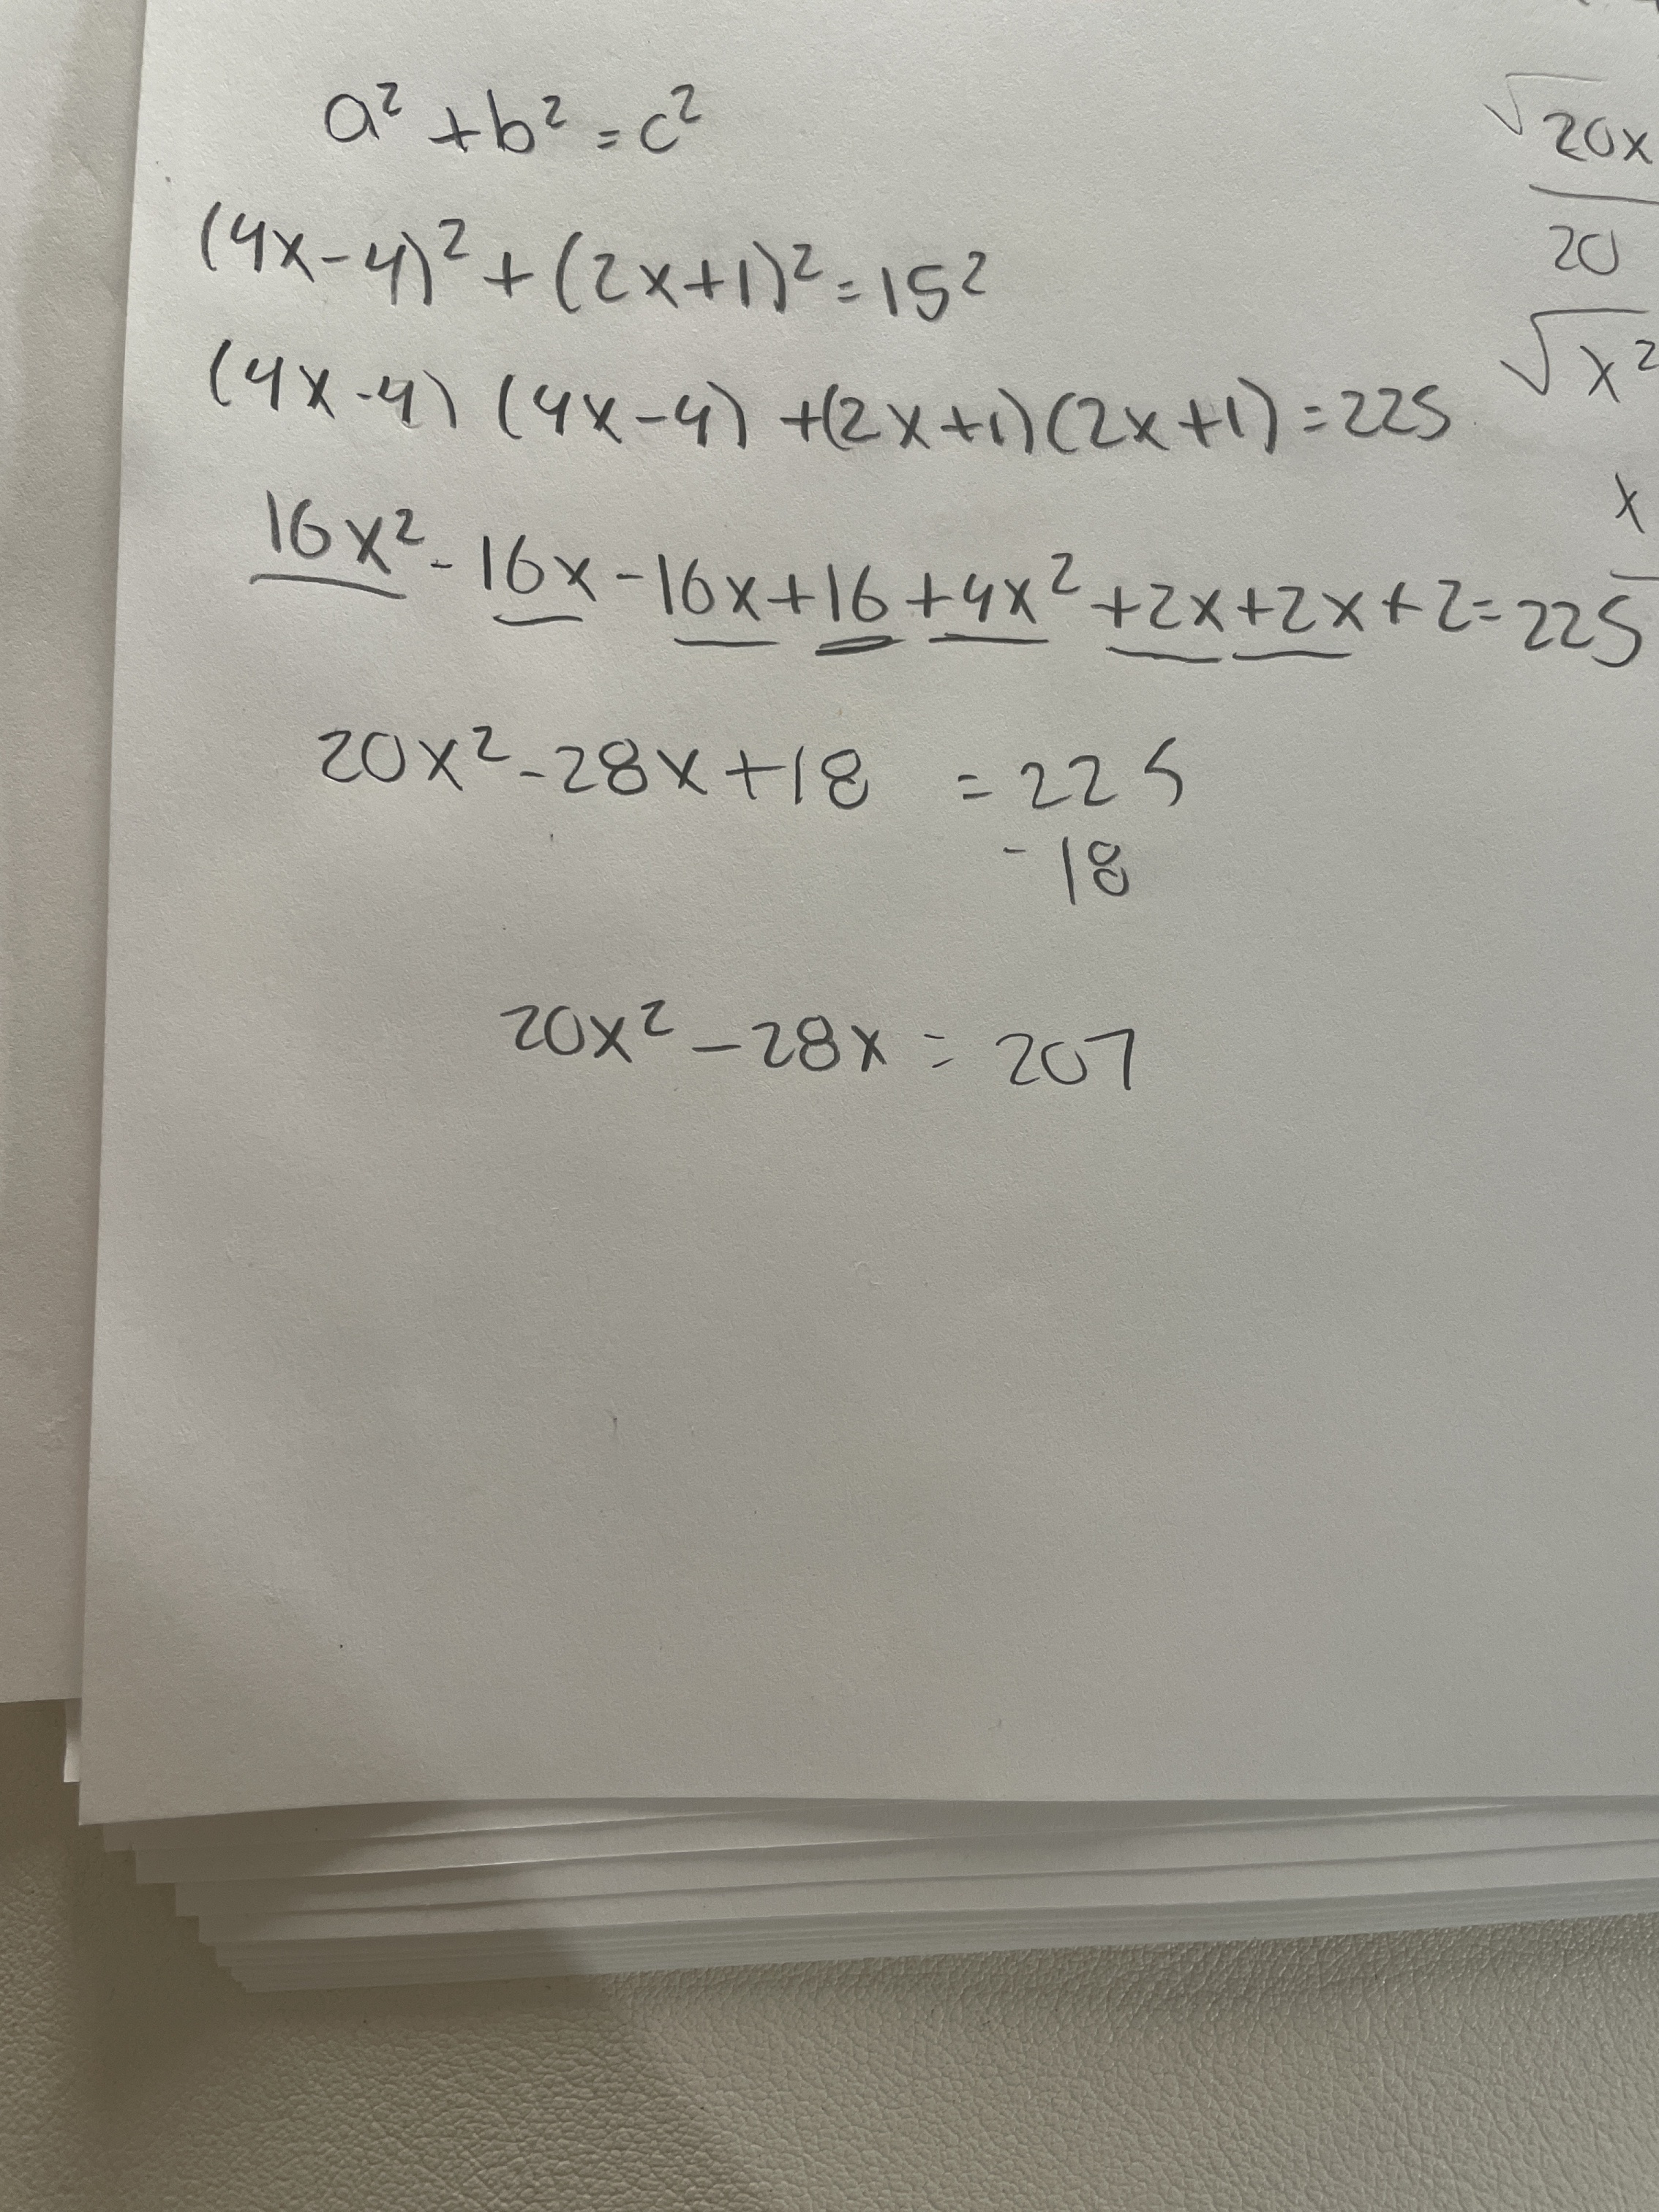 a² + b² = c²
(4x-4)² + (2x+1)² = 15²
(4x-4) (4x-4) + (2x+1)(2x+1) = 225
16x² - 16x - 16x + 16 + 4x² + 2x + 2x + 2 = 225
20x² - 28x + 18 = 225
- 18
20x² - 28x = 207
√20x
20
√x²
x